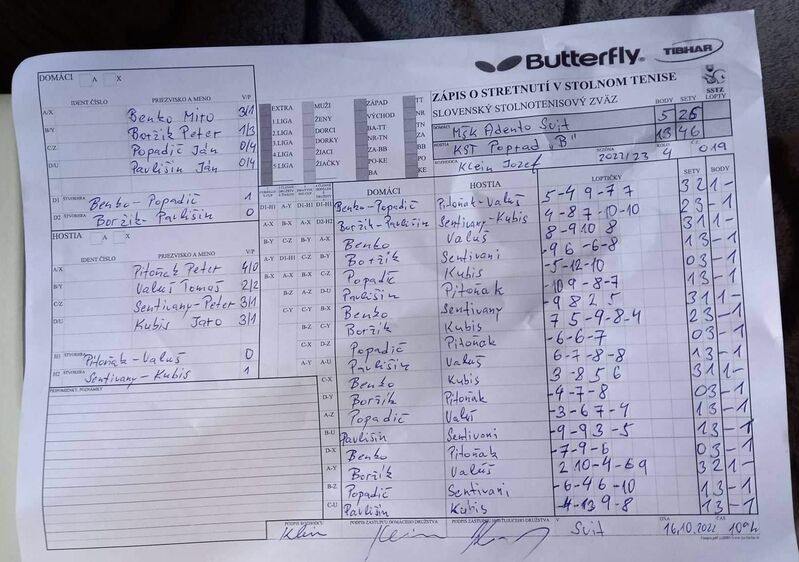 Butterfly
TIBHAR
ZÁPIS O STRETNUTÍ V STOLNOM TENISE
SLOVENSKÝ STOLNOTENISOVÝ ZVÄZ
SSTZ
BODY SETY LOPTY
DOMÁCI MŠK Adento Svit 5 26
HOSTIA KST Poprad "B" 13 46
SEZÓNA 2022/23 KOLO 4 Č. 019
ROZHODCA Klein Jozef
DOMÁCI A X
IDENT.ČÍSLO PRIEZVISKO A MENO V/P
A/X Benko Miro 3/1
B/Y Boržík Peter 1/3
C/Z Popadič Ján 0/4
D/U Pavlišin Ján 0/4
D1 ŠTVORHRA Benko-Popadič 1
D2 ŠTVORHRA Boržik-Pavlišin 0
HOSTIA A X
IDENT.ČÍSLO PRIEZVISKO A MENO V/P
A/X Pitoňak Peter 4/0
B/Y Valuš Tomaš 2/2
C/Z Sentivany-Peter 3/1
D/U Kubis Jaro 3/1
H1 ŠTVORHRA Pitoňak-Valuš 0
H2 ŠTVORHRA Sentivany-Kubis 1
PRIPOMIENKY, POZNÁMKY
EXTRA MUŽI ZÁPAD TT
1.LIGA ŽENY VÝCHOD NR
2.LIGA DORCI BA-TT TN
3.LIGA DORKY NR-TN ZA
4.LIGA ŽIACI ZA-BB BB
5.LIGA ŽIAČKY PO-KE PO
BA KE
DOMÁCI HOSTIA LOPTIČKY SETY BODY
D1-H1 A-Y D1-H1 Benko-Popadič Pitoňak-Valuš 5-4 9-7 7 3 2 1 -
A-X B-X D2-H2 Boržik-Pavlišin Sentivany-Kubis 4-8 7-10-10 2 3 - 1
B-Y C-Z A-X Benko Valuš 8-9 10 8 3 1 1 -
A-Y D1-H1 C-Z B-Y Boržik Sentivani -9 6 -6-8 1 3 - 1
B-X A-X B-X C-Z Popadič Kubis -5-12-10 0 3 - 1
B-Z A-Z D-U Pavlišin Pitoňak -10 9 -8-7 1 3 - 1
C-Y C-Y B-X Benko Sentivany -9 8 2 5 3 1 1 -
B-Z C-Y Boržik Kubis 7 5 -9-8-4 2 3 - 1
C-X D-Z Popadič Pitoňak -6-6-7 0 3 - 1
A-Y A-U Pavlišin Valuš 6-7-8-8 1 3 - 1
C-X Benko Kubis 3 -8 5 6 3 1 1 -
D-Y Boržik Pitoňak -4-7-8 0 3 - 1
A-Z Popadič Valuš -3-6 7-4 1 3 - 1
B-U Pavlišin Sentivani -9-9 3-5 1 3 - 1
D-X Benko Pitoňak -7-9-6 0 3 - 1
A-Y Boržik Valuš 2 10-4-6 9 3 2 1 -
B-Z Popadič Sentivani -6-4 6-10 1 3 - 1
C-U Pavlišin Kubis -4-13 9-8 1 3 - 1
PODPIS ROZHODCU PODPIS ZÁSTUPCU DOMÁCEHO DRUŽSTVA PODPIS ZÁSTUPCU HOSŤUJÚCEHO DRUŽSTVA V Svit DŇA 16.10.2022